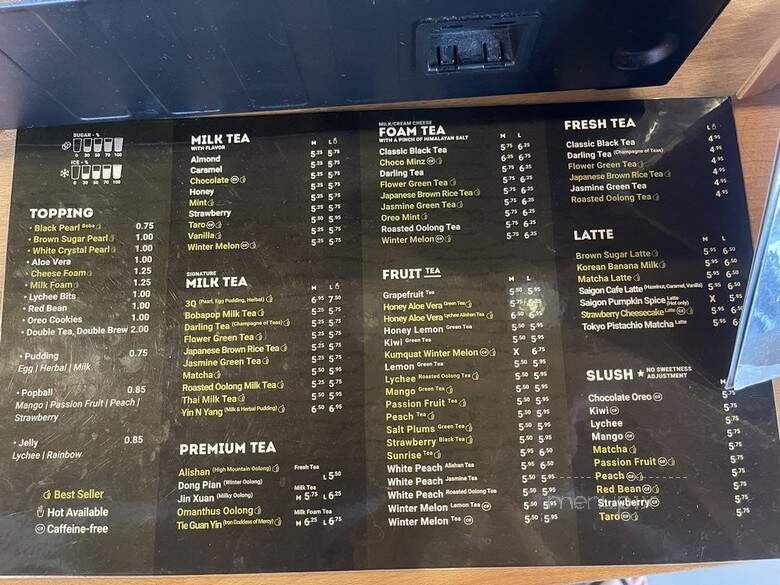 SUGAR - %
0 30 50 70 100
ICE - %
0 30 50 70 100
TOPPING
• Black Pearl Boba 0.75
• Brown Sugar Pearl 1.00
• White Crystal Pearl 1.00
• Aloe Vera 1.00
• Cheese Foam 1.25
• Milk Foam 1.25
• Lychee Bits 1.00
• Red Bean 1.00
• Oreo Cookies 1.00
• Double Tea, Double Brew 2.00
• Pudding 0.75
Egg | Herbal | Milk
• Popball 0.85
Mango | Passion Fruit | Peach |
Strawberry
• Jelly 0.85
Lychee | Rainbow
Best Seller
Hot Available
CF Caffeine-free
MILK TEA M L
WITH FLAVOR
Almond 5.25 5.75
Caramel 5.25 5.75
Chocolate CF 5.25 5.75
Honey 5.25 5.75
Mint 5.25 5.75
Strawberry 5.25 5.75
Taro CF 5.25 5.75
Vanilla 5.25 5.75
Winter Melon CF 5.25 5.75
SIGNATURE
MILK TEA M L
3Q (Pearl, Egg Pudding, Herbal) 6.95 7.50
Bobapop Milk Tea 5.25 5.75
Darling Tea (Champagne of Teas) 5.25 5.75
Flower Green Tea 5.25 5.75
Japanese Brown Rice Tea 5.25 5.75
Jasmine Green Tea 5.25 5.75
Matcha 5.25 5.75
Roasted Oolong Milk Tea 5.25 5.75
Thai Milk Tea 5.25 5.75
Yin N Yang (Milk & Herbal Pudding) 6.50 6.95
PREMIUM TEA
Alishan (High Mountain Oolong) Fresh Tea
Dong Pian (Winter Oolong) L 5.50
Jin Xuan (Milky Oolong) Milk Tea
Omanthus Oolong M 5.75 L 6.25
Tie Guan Yin (Iron Goddess of Mercy) Milk Foam Tea
M 6.25 L 6.75
MILK/CREAM CHEESE
FOAM TEA M L
WITH A PINCH OF HIMALAYAN SALT
Classic Black Tea 5.75 6.25
Choco Minz CF 6.25 6.75
Darling Tea 5.75 6.25
Flower Green Tea 5.75 6.25
Japanese Brown Rice Tea 5.75 6.25
Jasmine Green Tea 5.75 6.25
Oreo Mint 5.75 6.25
Roasted Oolong Tea 5.75 6.25
Winter Melon CF 5.75 6.25
FRUIT TEA M L
Grapefruit Tea 5.50 5.95
Honey Aloe Vera Green Tea 5.75
Honey Aloe Vera Lychee Alishan Tea 6.50
Honey Lemon Green Tea 5.50 5.95
Kiwi Green Tea 5.50 5.95
Kumquat Winter Melon CF X 6.75
Lemon Green Tea 5.50 5.95
Lychee Roasted Oolong Tea 5.50 5.95
Mango Green Tea 5.50 5.95
Passion Fruit Tea 5.50 5.95
Peach Tea 5.50 5.95
Salt Plums Green Tea 5.50 5.95
Strawberry Black Tea 5.50 5.95
Sunrise Tea 5.50 5.95
White Peach Alishan Tea 5.95 6.50
White Peach Jasmine Tea 5.50 5.95
White Peach Roasted Oolong Tea 5.50 5.95
Winter Melon Lemon Tea CF 5.50 5.95
Winter Melon Tea CF 5.50 5.95
FRESH TEA L
Classic Black Tea 4.95
Darling Tea (Champagne of Teas) 4.95
Flower Green Tea 4.95
Japanese Brown Rice Tea 4.95
Jasmine Green Tea 4.95
Roasted Oolong Tea 4.95
LATTE M L
Brown Sugar Latte 5.95 6.50
Korean Banana Milk 5.95 6.50
Matcha Latte 5.95 6.50
Saigon Cafe Latte (Hazelnut, Caramel, Vanilla) 5.95 6.50
Saigon Pumpkin Spice Latte (Hot only) X 5.95
Strawberry Cheesecake Latte CF 5.95 6.50
Tokyo Pistachio Matcha Latte 5.95 6.50
SLUSH ★ NO SWEETNESS
ADJUSTMENT M
Chocolate Oreo CF 5.75
Kiwi CF 5.75
Lychee 5.75
Mango CF 5.75
Matcha 5.75
Passion Fruit CF 5.75
Peach CF 5.75
Red Bean CF 5.75
Strawberry CF 5.75
Taro CF 5.75